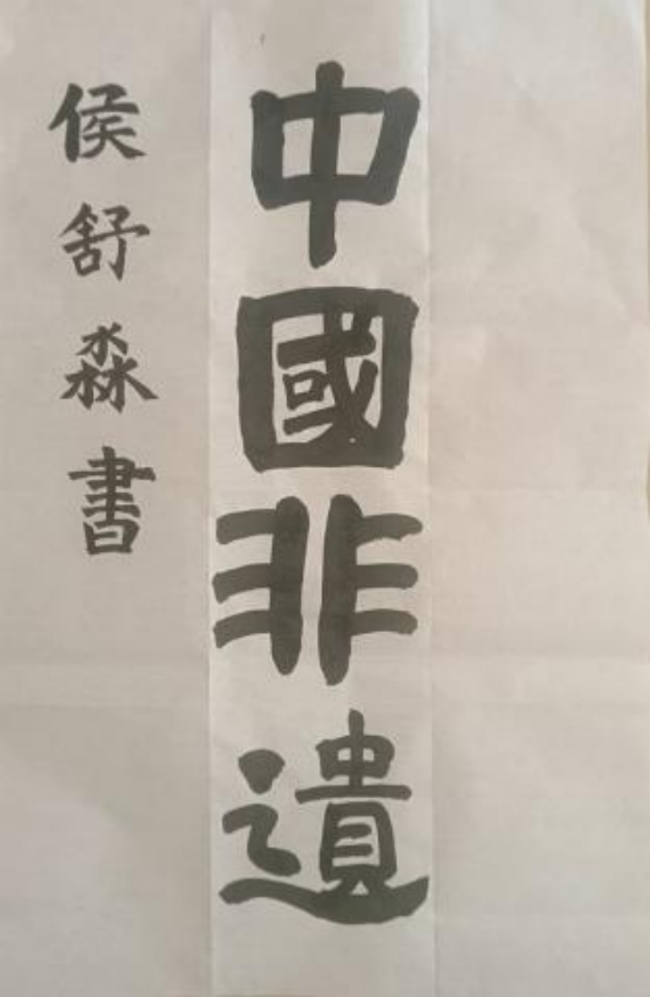 中國非遺
侯舒淼書